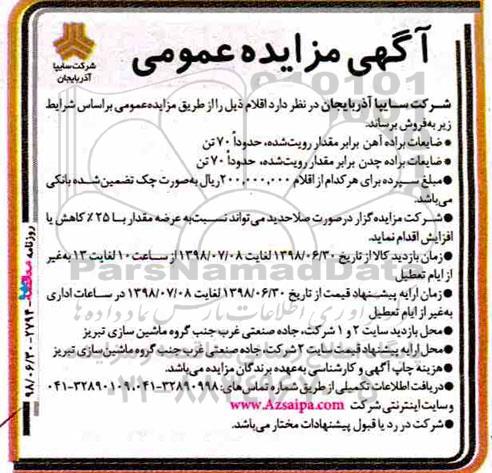 آگهی مزایده عمومی
شرکت سایپا
آذربایجان
شرکت سایپا آذربایجان در نظر دارد اقلام ذیل را از طریق مزایده عمومی براساس شرایط
زیر به فروش برساند.
● ضایعات براده آهن برابر مقدار رویت‌شده، حدوداً ۷۰ تن
● ضایعات براده چدن برابر مقدار رویت‌شده، حدوداً ۷۰ تن
● مبلغ سپرده برای هر کدام از اقلام ۲۰۰,۰۰۰,۰۰۰ ریال به‌صورت چک تضمین‌شده بانکی
می‌باشد.
● شرکت مزایده‌گزار در صورت صلاحدید می‌تواند نسبت به عرضه مقدار با ۲۵٪ کاهش یا
افزایش اقدام نماید.
● زمان بازدید کالا از تاریخ ۱۳۹۸/۰۶/۳۰ لغایت ۱۳۹۸/۰۷/۰۸ از ساعت ۱۰ لغایت ۱۳ به غیر
از ایام تعطیل
● زمان ارایه پیشنهاد قیمت از تاریخ ۱۳۹۸/۰۶/۳۰ لغایت ۱۳۹۸/۰۷/۰۸ در ساعات اداری
به‌غیر از ایام تعطیل
● محل بازدید سایت ۲ و ۱ شرکت، جاده صنعتی غرب جنب گروه ماشین سازی تبریز
● محل ارایه پیشنهاد قیمت سایت ۲ شرکت، جاده صنعتی غرب جنب گروه ماشین سازی تبریز
● هزینه چاپ آگهی و کارشناسی به‌عهده برندگان مزایده می‌باشد.
● دریافت اطلاعات تکمیلی از طریق شماره تماس‌های: ۳۲۸۹۰۹۹۸-۰۴۱، ۳۲۸۹۰۱۰۹-۰۴۱
و سایت اینترنتی شرکت www.Azsaipa.com
● شرکت در رد یا قبول پیشنهادات مختار می‌باشد.
روزنامه ۲۷۹۴ - ۹۸/۰۶/۳۰
ParsNamadData
۰۲۱-۸۸۳۴۹۶۷۰-۵